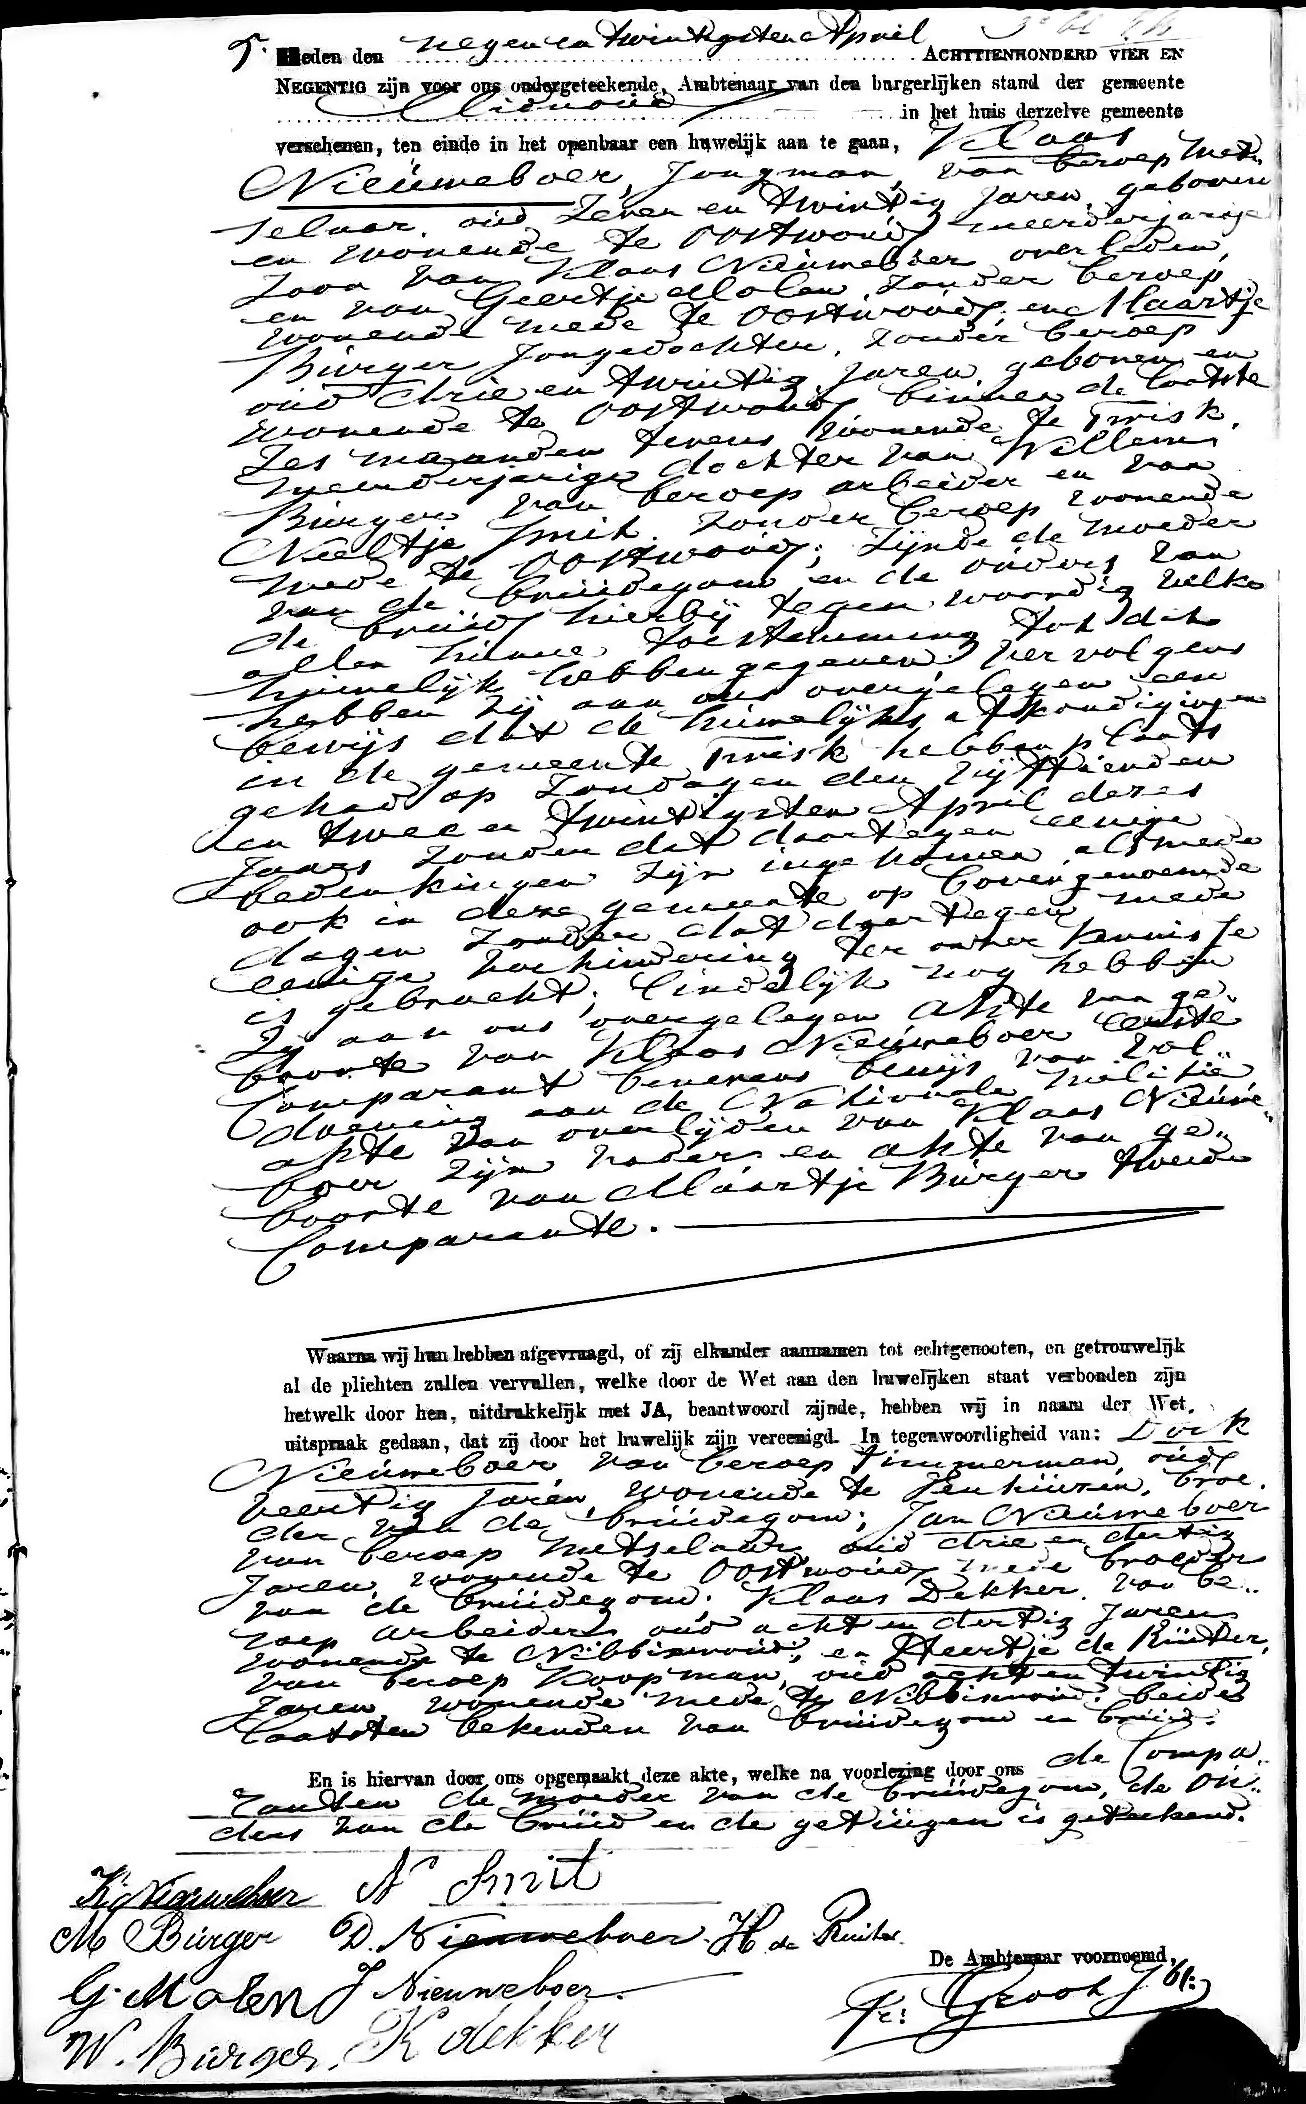 5.
Heden den negen en twintigsten April ACHTTIENHONDERD VIER EN
NEGENTIG zijn voor ons ondergeteekende, Ambtenaar van den burgerlijken stand der gemeente
Midwoud in het huis derzelve gemeente
verschenen, ten einde in het openbaar een huwelijk aan te gaan, Klaas
Nieuweboer, Jongman, van beroep met-
selaar, oud Zeven en twintig Jaren, geboren
en wonende te Oostwoud meerderjarige
Zoon van Klaas Nieuweboer overleden,
en van Geertje Molen, zonder beroep
wonende mede te Oostwoud; en Maartje
Burger Jongedochter, zonder beroep
oud drie en twintig Jaren geboren en
wonende te Oostwoud binnen de laatste
Zes maanden tevens wonende te Twisk,
meerderjarige dochter van Willem
Burger van beroep arbeider en van
Neeltje Smit, zonder beroep wonende
mede te Oostwoud; zijnde de moeder
van de bruidegom en de ouders van
de bruid hierbij tegenwoordig welke
allen hunne toestemming tot dit
huwelijk hebben gegeven. Vervolgens
hebben zij aan ons overgelegen een
bewijs dat de huwelijks afkondigingen
in de gemeente Twisk hebben plaats
gehad op Zondagen den vijftienden
en twee en twintigsten April dezes
Jaars zonder dat daartegen eenige
bedenkingen zijn ingekomen, alsmede
ook in deze gemeente op bovengenoemde
dagen zonder dat daartegen mede
eenige verhindering ter onzer kennisse
is gebracht; Eindelijk nog hebben
Zij aan ons overgelegen akte van ge-
boorte van Klaas Nieuweboer eerste
Comparant benevens bewijs van vol-
doening aan de Nationale Militie
akte van overlijden van Klaas Nieuwe-
boer zijn vader en akte van ge-
boorte van Maartje Burger tweede
Comparante.
Waarna wij hun hebben afgevraagd, of zij elkander aannamen tot echtgenooten, en getrouwelijk
al de plichten zullen vervullen, welke door de Wet aan den huwelijken staat verbonden zijn
hetwelk door hen, uitdrukkelijk met JA, beantwoord zijnde, hebben wij in naam der Wet,
uitspraak gedaan, dat zij door het huwelijk zijn vereenigd. In tegenwoordigheid van: Dirk
Nieuweboer, van beroep timmerman, oud
veertig Jaren, wonende te Venhuizen, broe-
der van de bruidegom; Jan Nieuweboer
van beroep metselaar oud drie en dertig
Jaren, wonende te Oostwoud mede broeder
van de bruidegom; Klaas Dekker, van be-
roep arbeider oud acht en dertig Jaren
wonende te Nibbixwoud; en Heertje de Ruiter,
van beroep Koopman, oud acht en twintig
Jaren wonende mede te Nibbixwoud, beide
laatsten bekenden van bruidegom en bruid.
En is hiervan door ons opgemaakt deze akte, welke na voorlezing door ons de Compa-
ranten de moeder van de bruidegom, de ou-
ders van de bruid en de getuigen is geteekend.
K. Nieuweboer N Smit
M Burger D. Nieuweboer. H de Ruiter.
De Ambtenaar voornoemd,
G. Molen J Nieuweboer.
W. Burger. K dekker